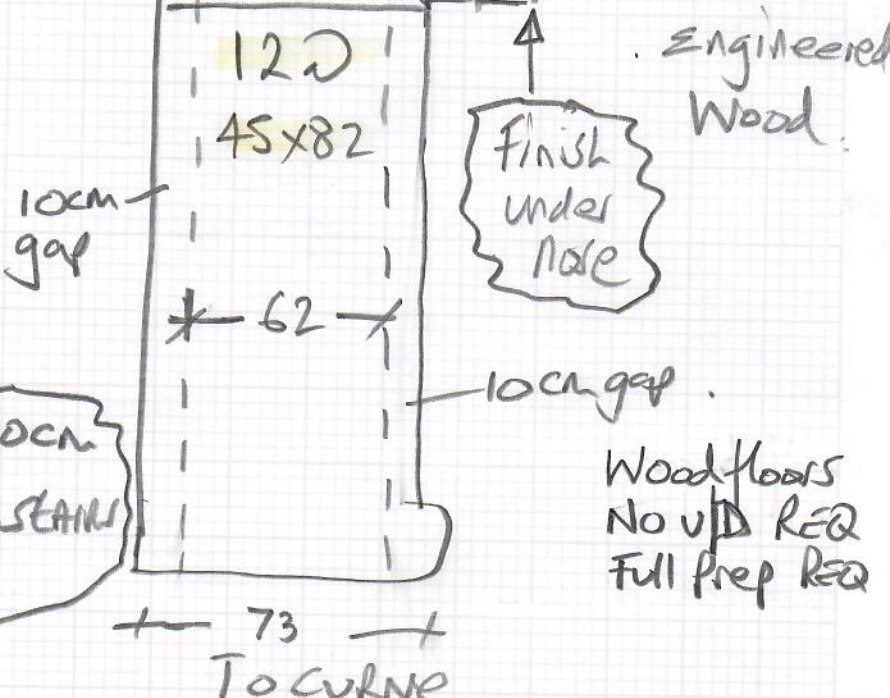 12D
45x82
Engineered
Wood
Finish
under
nose
10cm
gap
62
10cm gap
0cm
STAIRS
Wood floors
No U/D REQ
Full Prep REQ
73
To CURVE